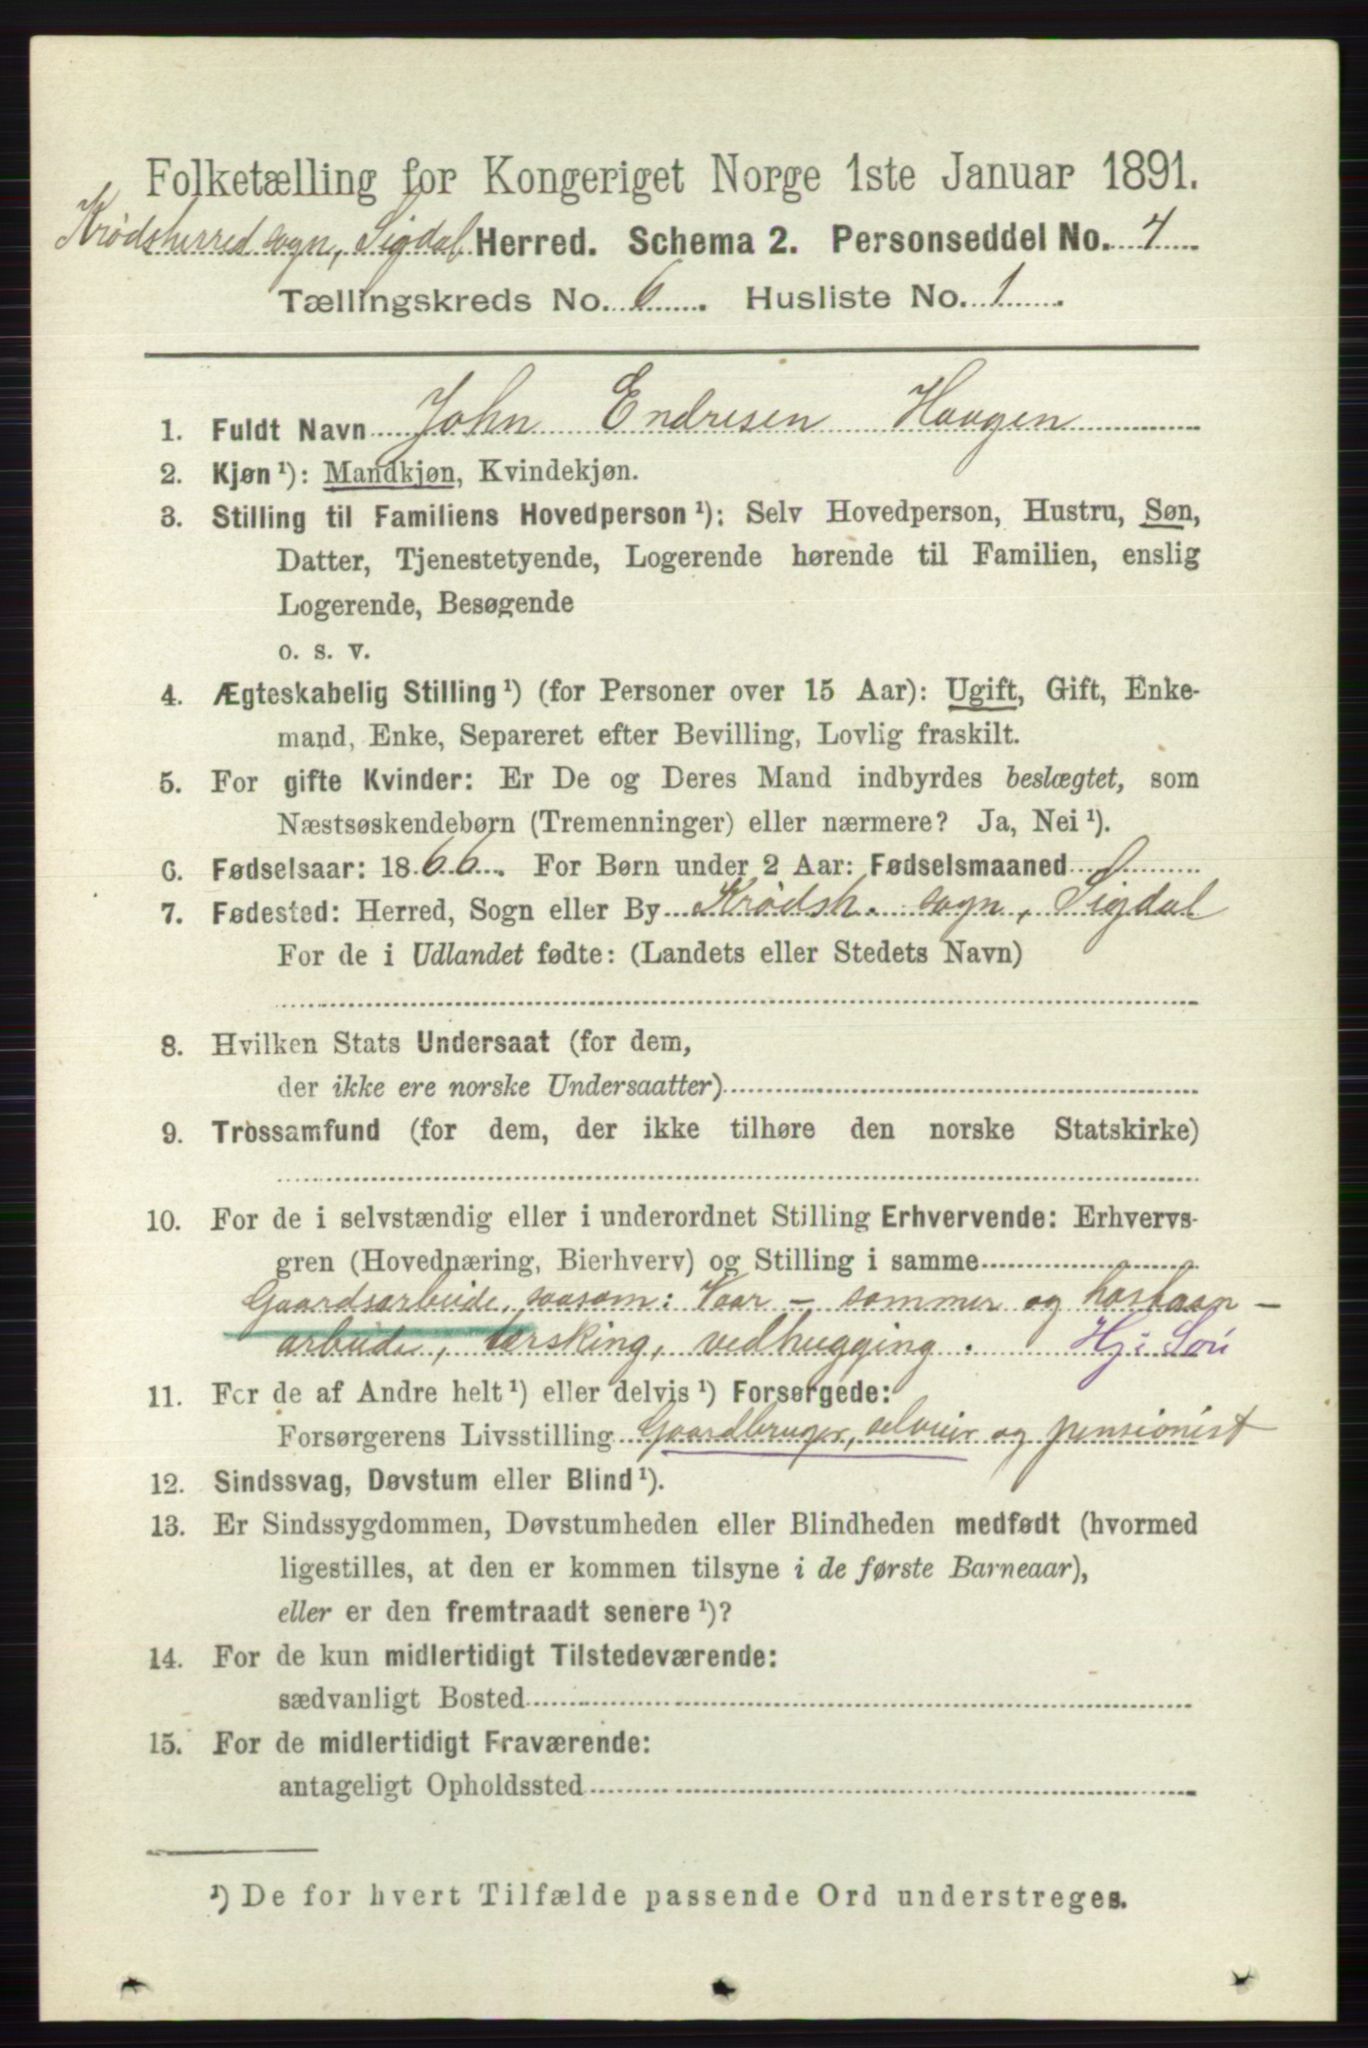 Folketælling for Kongeriget Norge 1ste Januar 1891.
Krødsherred sogn, Sigdal Herred. Schema 2. Personseddel No. 4
Tællingskreds No. 6. Husliste No. 1.
1. Fuldt Navn John Endresen Haugen
2. Kjøn¹): Mandkjøn, Kvindekjøn.
3. Stilling til Familiens Hovedperson¹): Selv Hovedperson, Hustru, Søn,
Datter, Tjenestetyende, Logerende hørende til Familien, enslig
Logerende, Besøgende
o. s. v.
4. Ægteskabelig Stilling¹) (for Personer over 15 Aar): Ugift, Gift, Enke-
mand, Enke, Separeret efter Bevilling, Lovlig fraskilt.
5. For gifte Kvinder: Er De og Deres Mand indbyrdes beslægtet, som
Næstsøskendebørn (Tremenninger) eller nærmere? Ja, Nei¹).
6. Fødselsaar: 1866. For Børn under 2 Aar: Fødselsmaaned
7. Fødested: Herred, Sogn eller By Krødsh. sogn, Sigdal
For de i Udlandet fødte: (Landets eller Stedets Navn)
8. Hvilken Stats Undersaat (for dem,
der ikke ere norske Undersaatter)
9. Trossamfund (for dem, der ikke tilhøre den norske Statskirke)
10. For de i selvstændig eller i underordnet Stilling Erhvervende: Erhvervs-
gren (Hovednæring, Bierhverv) og Stilling i samme
Gaardsarbeide, saasom: Vaar – sommer og høstaan-
arbeide, tærsking, vedhugging. Hj: Søn
11. For de af Andre helt¹) eller delvis¹) Forsørgede:
Forsørgerens Livsstilling Gaardbruger, selveier og pensionist
12. Sindssvag, Døvstum eller Blind¹).
13. Er Sindssygdommen, Døvstumheden eller Blindheden medfødt (hvormed
ligestilles, at den er kommen tilsyne i de første Barneaar),
eller er den fremtraadt senere¹)?
14. For de kun midlertidigt Tilstedeværende:
sædvanligt Bosted
15. For de midlertidigt Fraværende:
antageligt Opholdssted
¹) De for hvert Tilfælde passende Ord understreges.